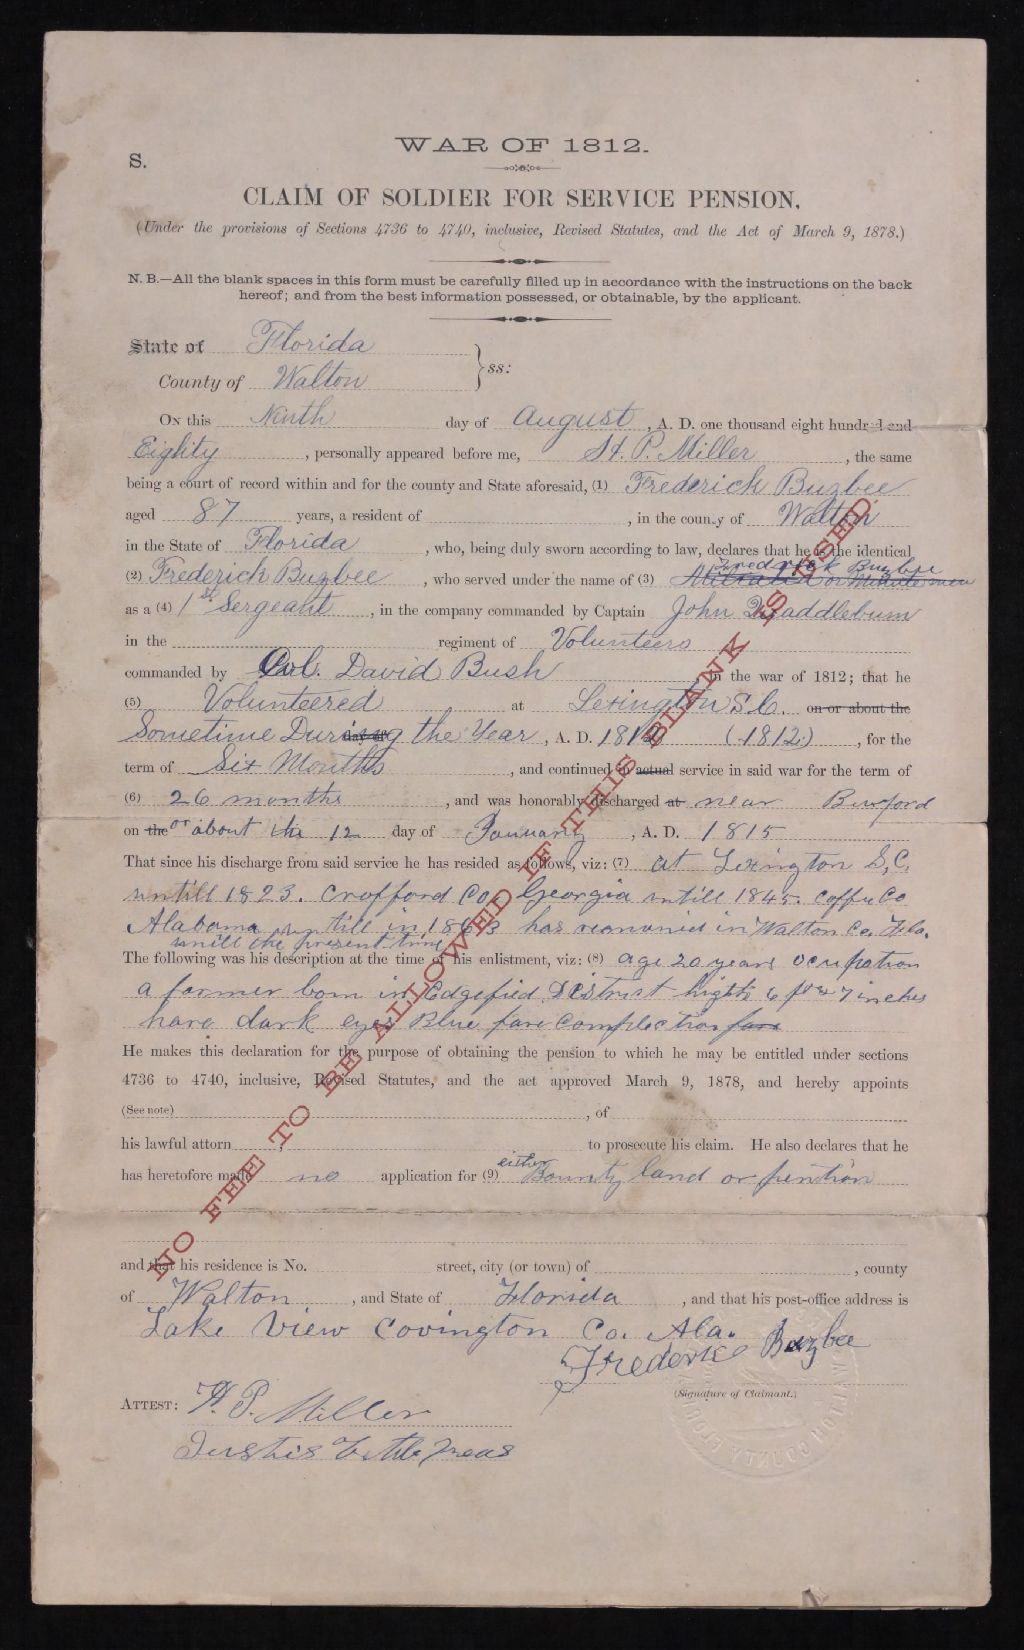 WAR OF 1812.
S.
CLAIM OF SOLDIER FOR SERVICE PENSION,
(Under the provisions of Sections 4736 to 4740, inclusive, Revised Statutes, and the Act of March 9, 1878.)
N. B.—All the blank spaces in this form must be carefully filled up in accordance with the instructions on the back
hereof; and from the best information possessed, or obtainable, by the applicant.
State of Florida
County of Walton ss:
On this Ninth day of August, A. D. one thousand eight hundred and
Eighty, personally appeared before me, H. P. Miller, the same
being a court of record within and for the county and State aforesaid, (1) Frederich Buzbee
aged 87 years, a resident of , in the county of Walton
in the State of Florida, who, being duly sworn according to law, declares that he is the identical
Frederick Buzbee
(2) Frederich Buzbee, who served under the name of (3)
as a (4) 1st Sergeant, in the company commanded by Captain John Quaddlebum
in the regiment of Volunteers
commanded by Col. David Bush in the war of 1812; that he
(5) Volunteered at Lexington S.C. on or about the
Sometime During the Year, A. D. 1812 (1812), for the
term of Six Months, and continued in actual service in said war for the term of
(6) 26 months, and was honorably discharged at near Burford
on the or about the 12 day of January, A. D. 1815
That since his discharge from said service he has resided as follows, viz: (7) at Lexington S.C.
untill 1823. Crofford Co. Georgia untill 1845. Coffee Co
Alabama untill in 1863 has remanied in Walton Co. Fla.
untill the present time
The following was his description at the time of his enlistment, viz: (8) age 20 years ocupation
a farmer born in Edgefied District highth 6 foot 7 inches
hare dark eyes Blue fare complection fare
He makes this declaration for the purpose of obtaining the pension to which he may be entitled under sections
4736 to 4740, inclusive, Revised Statutes, and the act approved March 9, 1878, and hereby appoints
(See note) , of
his lawful attorn , to prosecute his claim. He also declares that he
has heretofore made no application for (9) either Bounty land or pention
and that his residence is No. street, city (or town) of , county
of Walton, and State of Florida, and that his post-office address is
Lake View Covington Co. Ala.
Frederick Buzbee
(Signature of Claimant.)
Attest: H. P. Miller
NO FEE TO BE ALLOWED IF THIS BLANK IS USED.